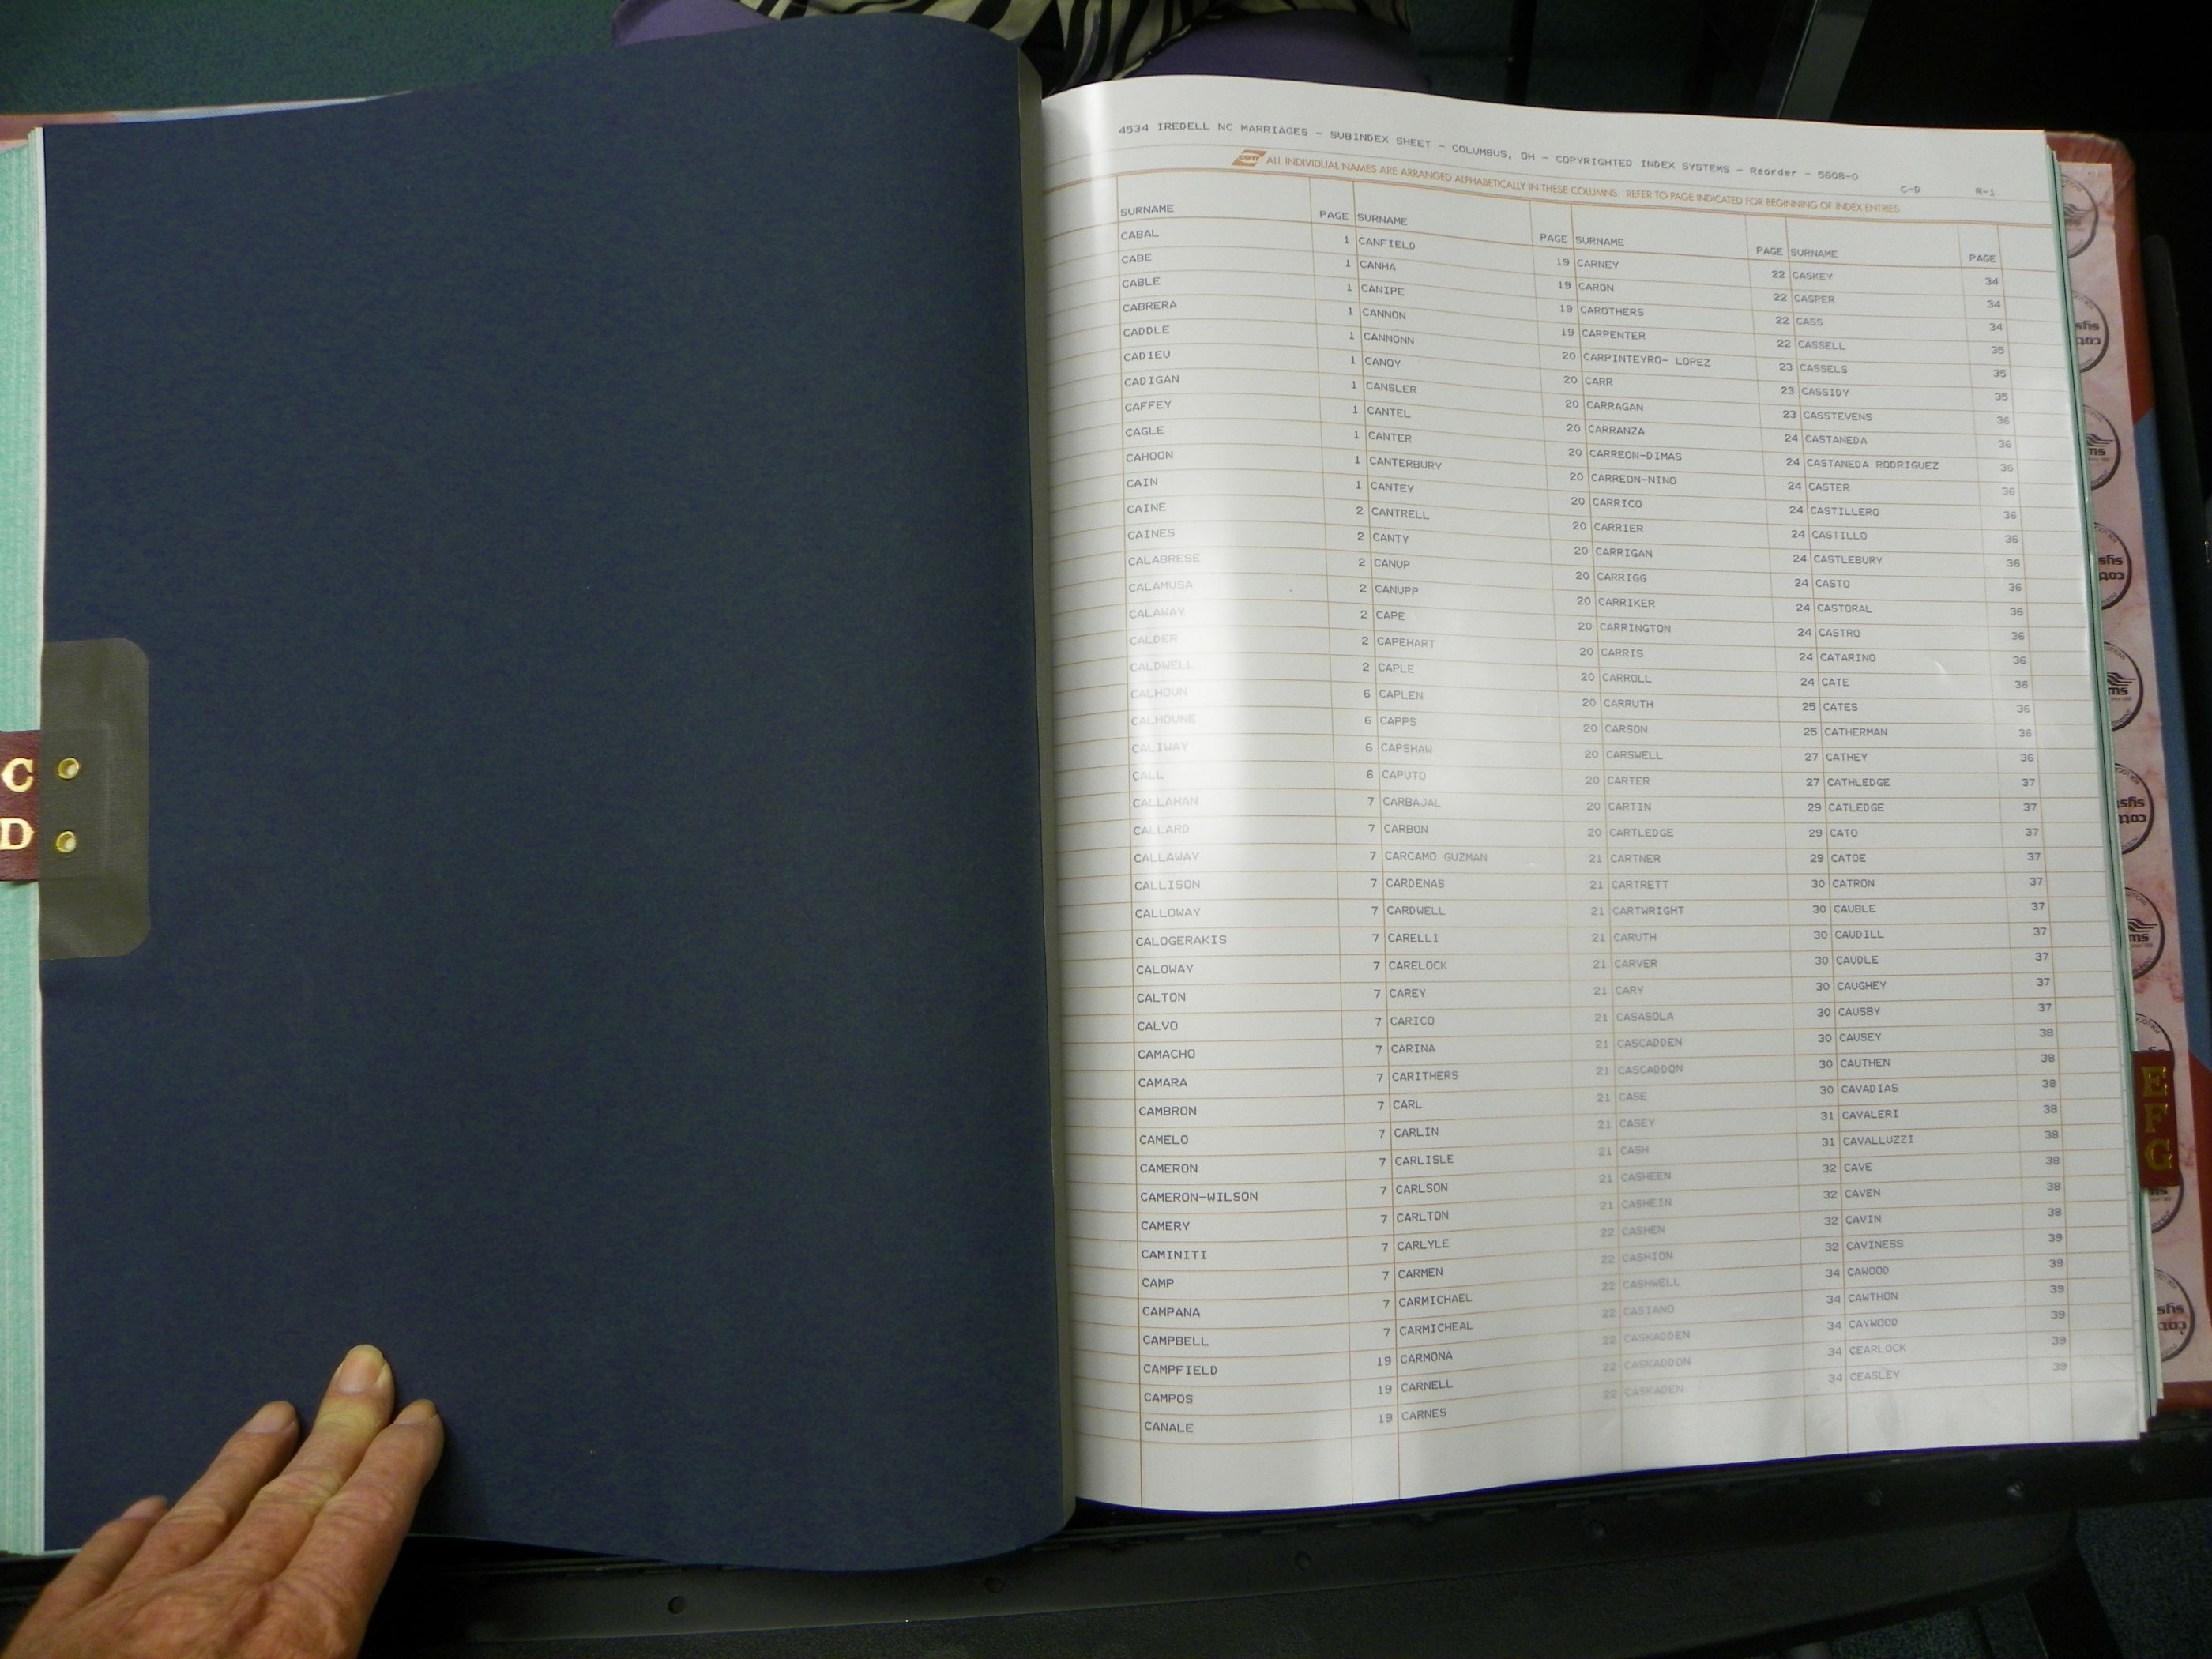 4534 IREDELL NC MARRIAGES - SUBINDEX SHEET - COLUMBUS, OH - COPYRIGHTED INDEX SYSTEMS - Reorder - 5608-0 C-D R-1
COTT ALL INDIVIDUAL NAMES ARE ARRANGED ALPHABETICALLY IN THESE COLUMNS. REFER TO PAGE INDICATED FOR BEGINNING OF INDEX ENTRIES
SURNAME PAGE SURNAME PAGE SURNAME PAGE SURNAME PAGE
CABAL 1 CANFIELD 19 CARNEY 22 CASKEY 34
CABE 1 CANHA 19 CARON 22 CASPER 34
CABLE 1 CANIPE 19 CAROTHERS 22 CASS 34
CABRERA 1 CANNON 19 CARPENTER 22 CASSELL 35
CADDLE 1 CANNONN 20 CARPINTEYRO- LOPEZ 23 CASSELS 35
CADIEU 1 CANOY 20 CARR 23 CASSIDY 35
CADIGAN 1 CANSLER 20 CARRAGAN 23 CASSTEVENS 36
CAFFEY 1 CANTEL 20 CARRANZA 24 CASTANEDA 36
CAGLE 1 CANTER 20 CARREON-DIMAS 24 CASTANEDA RODRIGUEZ 36
CAHOON 1 CANTERBURY 20 CARREON-NINO 24 CASTER 36
CAIN 1 CANTEY 20 CARRICO 24 CASTILLERO 36
CAINE 2 CANTRELL 20 CARRIER 24 CASTILLO 36
CAINES 2 CANTY 20 CARRIGAN 24 CASTLEBURY 36
CALABRESE 2 CANUP 20 CARRIGG 24 CASTO 36
CALAMUSA 2 CANUPP 20 CARRIKER 24 CASTORAL 36
CALAWAY 2 CAPE 20 CARRINGTON 24 CASTRO 36
CALDER 2 CAPEHART 20 CARRIS 24 CATARINO 36
CALDWELL 2 CAPLE 20 CARROLL 24 CATE 36
CALHOUN 6 CAPLEN 20 CARRUTH 25 CATES 36
CALHOUNE 6 CAPPS 20 CARSON 25 CATHERMAN 36
CALIWAY 6 CAPSHAW 20 CARSWELL 27 CATHEY 36
CALL 6 CAPUTO 20 CARTER 27 CATHLEDGE 37
CALLAHAN 7 CARBAJAL 20 CARTIN 29 CATLEDGE 37
CALLARD 7 CARBON 20 CARTLEDGE 29 CATO 37
CALLAWAY 7 CARCAMO GUZMAN 21 CARTNER 29 CATOE 37
CALLISON 7 CARDENAS 21 CARTRETT 30 CATRON 37
CALLOWAY 7 CARDWELL 21 CARTWRIGHT 30 CAUBLE 37
CALOGERAKIS 7 CARELLI 21 CARUTH 30 CAUDILL 37
CALOWAY 7 CARELOCK 21 CARVER 30 CAUDLE 37
CALTON 7 CAREY 21 CARY 30 CAUGHEY 37
CALVO 7 CARICO 21 CASASOLA 30 CAUSBY 37
CAMACHO 7 CARINA 21 CASCADDEN 30 CAUSEY 38
CAMARA 7 CARITHERS 21 CASCADDON 30 CAUTHEN 38
CAMBRON 7 CARL 21 CASE 30 CAVADIAS 38
CAMELO 7 CARLIN 21 CASEY 31 CAVALERI 38
CAMERON 7 CARLISLE 21 CASH 31 CAVALLUZZI 38
CAMERON-WILSON 7 CARLSON 21 CASHEEN 32 CAVE 38
CAMERY 7 CARLTON 21 CASHEIN 32 CAVEN 38
CAMINITI 7 CARLYLE 22 CASHEN 32 CAVIN 38
CAMP 7 CARMEN 22 CASHION 32 CAVINESS 39
CAMPANA 7 CARMICHAEL 22 CASHWELL 34 CAWOOD 39
CAMPBELL 7 CARMICHEAL 22 CASIANO 34 CAWTHON 39
CAMPFIELD 19 CARMONA 22 CASKADDEN 34 CAYWOOD 39
CAMPOS 19 CARNELL 22 CASKADDON 34 CEARLOCK 39
CANALE 19 CARNES 22 CASKADEN 34 CEASLEY 39
C
D
E
F
G